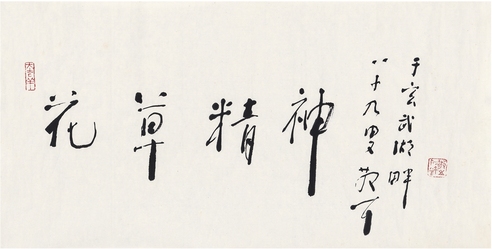 花草精神
于玄武湖畔
八十九叟散耳